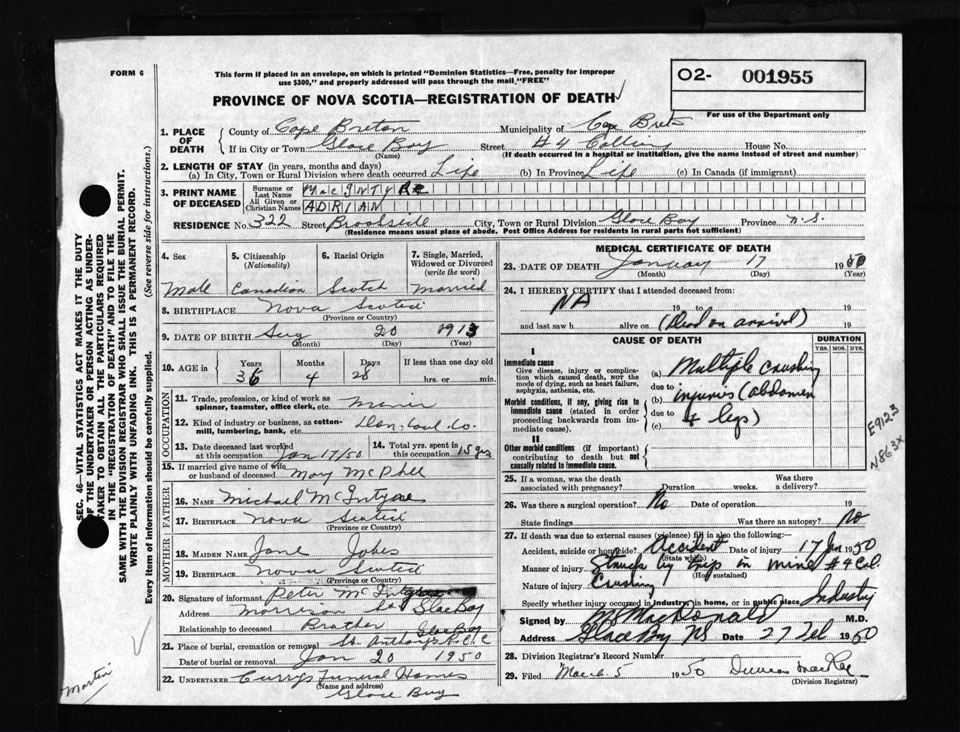 FORM 6
This form if placed in an envelope, on which is printed "Dominion Statistics—Free, penalty for improper
use $300," and properly addressed will pass through the mail "FREE"
O2- 001955
For use of the Department only
PROVINCE OF NOVA SCOTIA—REGISTRATION OF DEATH
1. PLACE OF DEATH
County of Cape Breton Municipality of Cape Breton
If in City or Town Glace Bay Street #4 Colliery House No.
(Name) (If death occurred in a hospital or institution, give the name instead of street and number)
2. LENGTH OF STAY (in years, months and days)
(a) In City, Town or Rural Division where death occurred Life (b) In Province Life (c) In Canada (if immigrant)
3. PRINT NAME OF DECEASED
Surname or Last Name MACINTYRE
All Given or Christian Names ADRIAN
RESIDENCE No. 322 Street Brookside City, Town or Rural Division Glace Bay Province N.S.
(Residence means usual place of abode. Post Office Address for residents in rural parts not sufficient)
4. Sex 5. Citizenship (Nationality) 6. Racial Origin 7. Single, Married, Widowed or Divorced (write the word)
Male Canadian Scotch Married
8. BIRTHPLACE Nova Scotia
(Province or Country)
9. DATE OF BIRTH Aug 20 1913
(Month) (Day) (Year)
10. AGE in Years Months Days If less than one day old
36 4 28 hrs. or min.
OCCUPATION
11. Trade, profession, or kind of work as
spinner, teamster, office clerk, etc. Miner
12. Kind of industry or business, as cotton-
mill, lumbering, bank, etc. Dom. Coal Co.
13. Date deceased last worked
at this occupation Jan 17/50
14. Total yrs. spent in
this occupation 15 yrs
15. If married give name of wife
or husband of deceased Mary McPhee
FATHER
16. NAME Michael McIntyre
17. BIRTHPLACE Nova Scotia
(Province or Country)
MOTHER
18. MAIDEN NAME Jane
19. BIRTHPLACE Nova Scotia
(Province or Country)
20. Signature of informant Peter McIntyre
Address Morrison St Glace Bay
Relationship to deceased Brother
21. Place of burial, cremation or removal St. Anthony's R.C.C Glace Bay
Date of burial or removal Jan 20 1950
22. UNDERTAKER Curry's Funeral Homes
(Name and address)
Glace Bay
MEDICAL CERTIFICATE OF DEATH
23. DATE OF DEATH January 17 1950
(Month) (Day) (Year)
24. I HEREBY CERTIFY that I attended deceased from:
NA 19 to 19
and last saw h alive on (Dead on arrival) 19
CAUSE OF DEATH
DURATION
YRS. MOS. DYS.
I
Immediate cause
Give disease, injury or complica-
tion which caused death, NOT the
mode of dying, such as heart failure,
asphyxia, asthenia, etc.
(a) Multiple crushing
due to
Morbid conditions, if any, giving rise to
immediate cause (stated in order
proceeding backwards from im-
mediate cause).
(b) injuries (abdomen
due to
(c) & legs)
II
Other morbid conditions (if important)
contributing to death but not
causally related to immediate cause.
E9123
N863X
25. If a woman, was the death
associated with pregnancy? Duration weeks. Was there
a delivery?
26. Was there a surgical operation? No Date of operation 19
State findings Was there an autopsy? No
27. If death was due to external causes (violence) fill in also the following:
Accident, suicide or homicide? Accident Date of injury 17 Jan 1950
(State which)
Manner of injury Struck by trip in mine #4 Col.
(How sustained)
Nature of injury Crushing
Specify whether injury occurred in industry, in home, or in public place Industry
Signed by MacDonald M.D.
Address Glace Bay NS Date 27 Feb 1950
28. Division Registrar's Record Number
29. Filed March 5 1950 Duncan MacRae
(Division Registrar)
SEC. 46—VITAL STATISTICS ACT MAKES IT THE DUTY
OF THE UNDERTAKER OR PERSON ACTING AS UNDER-
TAKER TO OBTAIN ALL THE PARTICULARS REQUIRED
IN THE "REGISTRATION OF DEATH" AND TO FILE THE
SAME WITH THE DIVISION REGISTRAR WHO SHALL ISSUE THE BURIAL PERMIT.
WRITE PLAINLY WITH UNFADING INK. THIS IS A PERMANENT RECORD.
Every item of information should be carefully supplied. (See reverse side for instructions.)
Martin